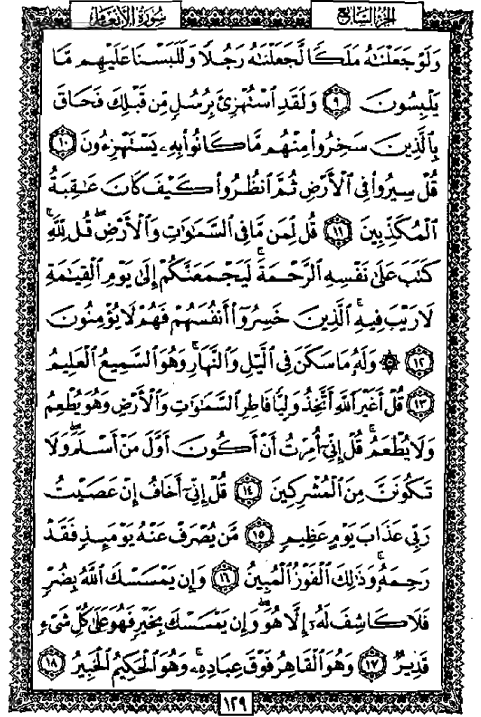 الجزء السابع
سورة الأنعام
وَلَوْ جَعَلْنَٰهُ مَلَكًا لَّجَعَلْنَٰهُ رَجُلًا وَلَلَبَسْنَا عَلَيْهِم مَّا
يَلْبِسُونَ ۝٩ وَلَقَدِ ٱسْتُهْزِئَ بِرُسُلٍ مِّن قَبْلِكَ فَحَاقَ
بِٱلَّذِينَ سَخِرُوا۟ مِنْهُم مَّا كَانُوا۟ بِهِۦ يَسْتَهْزِءُونَ ۝١٠
قُلْ سِيرُوا۟ فِى ٱلْأَرْضِ ثُمَّ ٱنظُرُوا۟ كَيْفَ كَانَ عَٰقِبَةُ
ٱلْمُكَذِّبِينَ ۝١١ قُل لِّمَن مَّا فِى ٱلسَّمَٰوَٰتِ وَٱلْأَرْضِ ۖ قُل لِّلَّهِ ۚ
كَتَبَ عَلَىٰ نَفْسِهِ ٱلرَّحْمَةَ ۚ لَيَجْمَعَنَّكُمْ إِلَىٰ يَوْمِ ٱلْقِيَٰمَةِ
لَا رَيْبَ فِيهِ ۚ ٱلَّذِينَ خَسِرُوٓا۟ أَنفُسَهُمْ فَهُمْ لَا يُؤْمِنُونَ
۝١٢ ۞ وَلَهُۥ مَا سَكَنَ فِى ٱلَّيْلِ وَٱلنَّهَارِ ۚ وَهُوَ ٱلسَّمِيعُ ٱلْعَلِيمُ
۝١٣ قُلْ أَغَيْرَ ٱللَّهِ أَتَّخِذُ وَلِيًّا فَاطِرِ ٱلسَّمَٰوَٰتِ وَٱلْأَرْضِ وَهُوَ يُطْعِمُ
وَلَا يُطْعَمُ ۗ قُلْ إِنِّىٓ أُمِرْتُ أَنْ أَكُونَ أَوَّلَ مَنْ أَسْلَمَ ۖ وَلَا
تَكُونَنَّ مِنَ ٱلْمُشْرِكِينَ ۝١٤ قُلْ إِنِّىٓ أَخَافُ إِنْ عَصَيْتُ
رَبِّى عَذَابَ يَوْمٍ عَظِيمٍ ۝١٥ مَّن يُصْرَفْ عَنْهُ يَوْمَئِذٍ فَقَدْ
رَحِمَهُۥ ۚ وَذَٰلِكَ ٱلْفَوْزُ ٱلْمُبِينُ ۝١٦ وَإِن يَمْسَسْكَ ٱللَّهُ بِضُرٍّ
فَلَا كَاشِفَ لَهُۥٓ إِلَّا هُوَ ۖ وَإِن يَمْسَسْكَ بِخَيْرٍ فَهُوَ عَلَىٰ كُلِّ شَىْءٍ
قَدِيرٌ ۝١٧ وَهُوَ ٱلْقَاهِرُ فَوْقَ عِبَادِهِۦ ۚ وَهُوَ ٱلْحَكِيمُ ٱلْخَبِيرُ ۝١٨
١٢٩